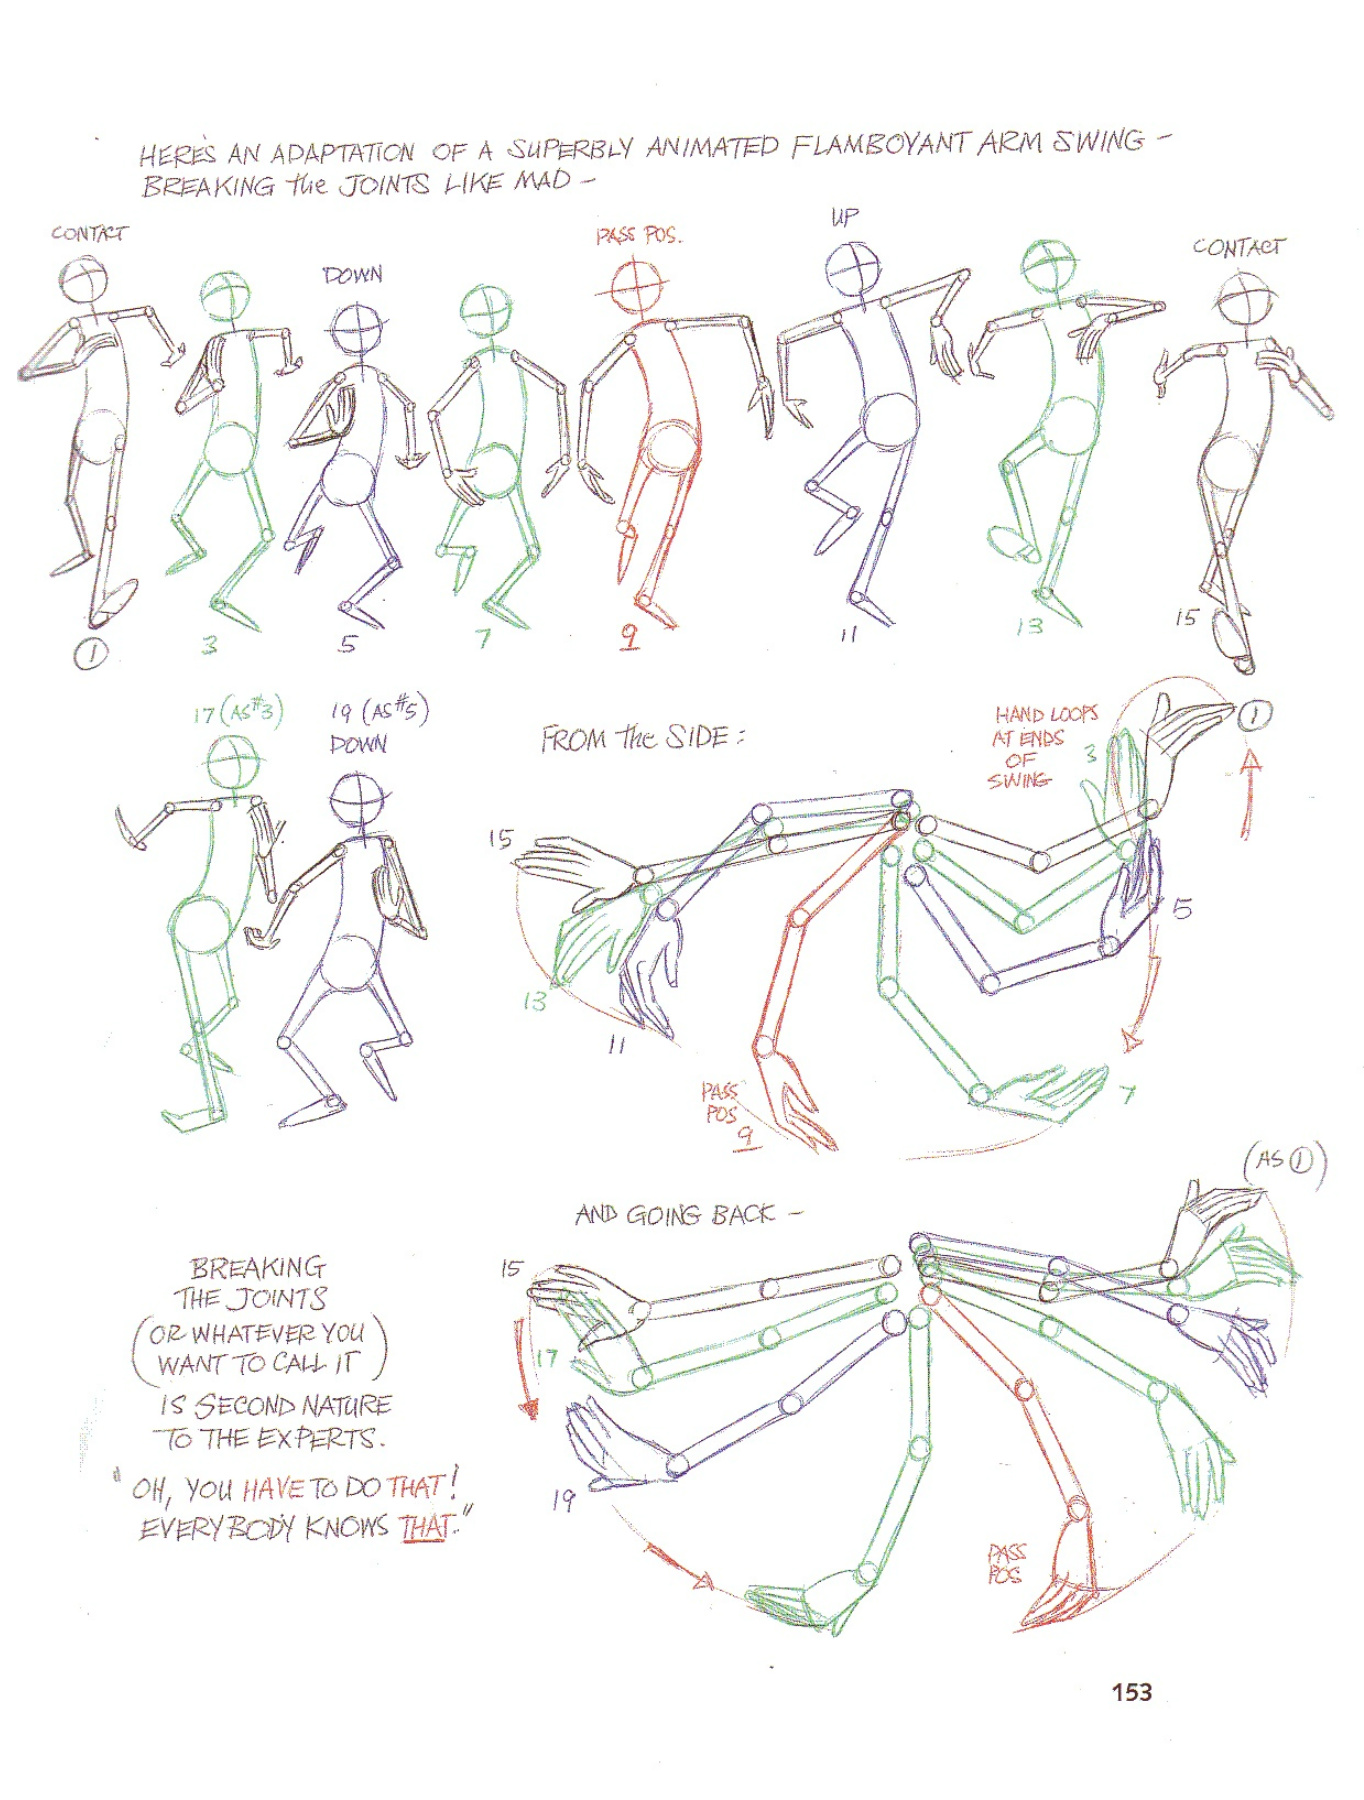 HERE'S AN ADAPTATION OF A SUPERBLY ANIMATED FLAMBOYANT ARM SWING –
BREAKING the JOINTS LIKE MAD –
CONTACT
DOWN
PASS POS.
UP
CONTACT
1
3
5
7
9
11
13
15
17 (AS #3)
19 (AS #5)
DOWN
FROM the SIDE:
HAND LOOPS
AT ENDS
OF
SWING
1
3
5
7
15
13
11
PASS
POS
9
AND GOING BACK –
(AS 1)
15
17
19
PASS
POS
BREAKING
THE JOINTS
(OR WHATEVER YOU
WANT TO CALL IT)
IS SECOND NATURE
TO THE EXPERTS.
"OH, YOU HAVE TO DO THAT!
EVERYBODY KNOWS THAT."
153